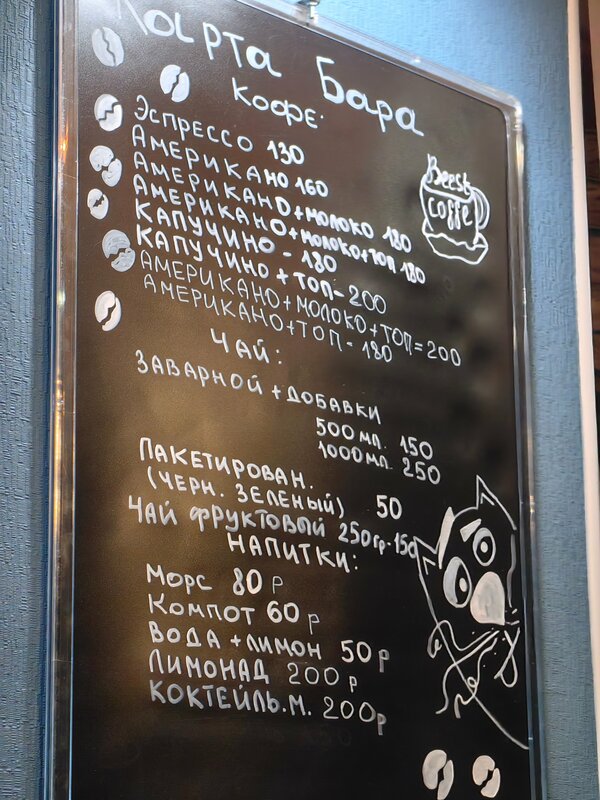 Карта Бара
Кофе:
Эспрессо 130
Американо 160
Американо+молоко 180
Американо+молоко+топ 180
Капучино - 180
Капучино + топ - 200
Американо+молоко+топ=200
Американо+топ - 180
Beest
coffe
Чай:
Заварной + добавки
500 мл. 150
1000 мл. 250
Пакетирован.
(черн. зеленый) 50
Чай фруктовый 250гр-150
Напитки:
Морс 80 р
Компот 60 р
Вода +лимон 50 р
Лимонад 200 р
Коктейль.м. 200р